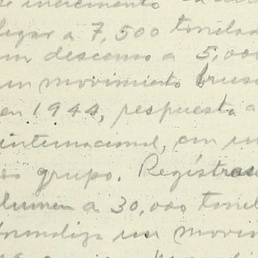 de incremento
llegar a 7,500 tonelad
un descenso a 5,000
un movimiento brusc
en 1944, respuesta a
internacional, con un
grupo. Regístrase
lumen a 30,000 tonel
formaliza un movim